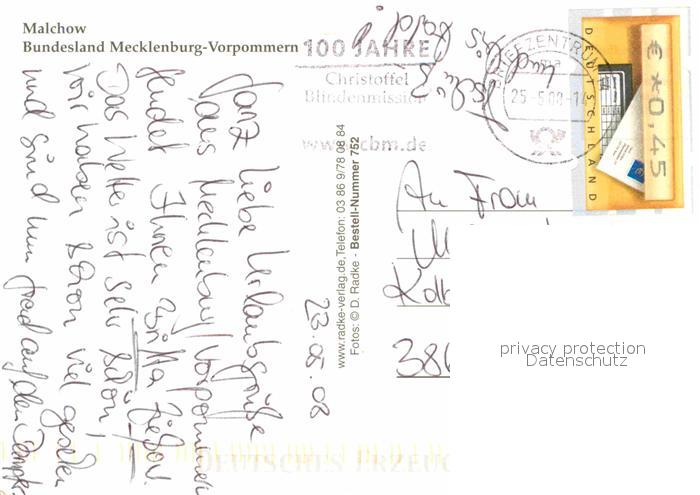 Malchow
Bundesland Mecklenburg-Vorpommern
100 JAHRE
Christoffel
Blindenmission
www.cbm.de
BRIEFZENTRUM
25-5.08-14
DEUTSCHLAND
€*0,45
23.05.08
Ganz liebe Urlaubsgrüße
aus Mecklenburg/Vorpommern
sendet Ihnen
Das Wetter ist sehr schön,
wir haben schon viel gesehen
und sind nun grad auf dem Dampfer.
Tschüß
und bis
bald!
www.radke-verlag.de, Telefon: 03 86 9/78 08 84
Fotos: © D. Radke - Bestell-Nummer 752
An Frau
386
privacy protection
Datenschutz
DEUTSCHES ERZEUG